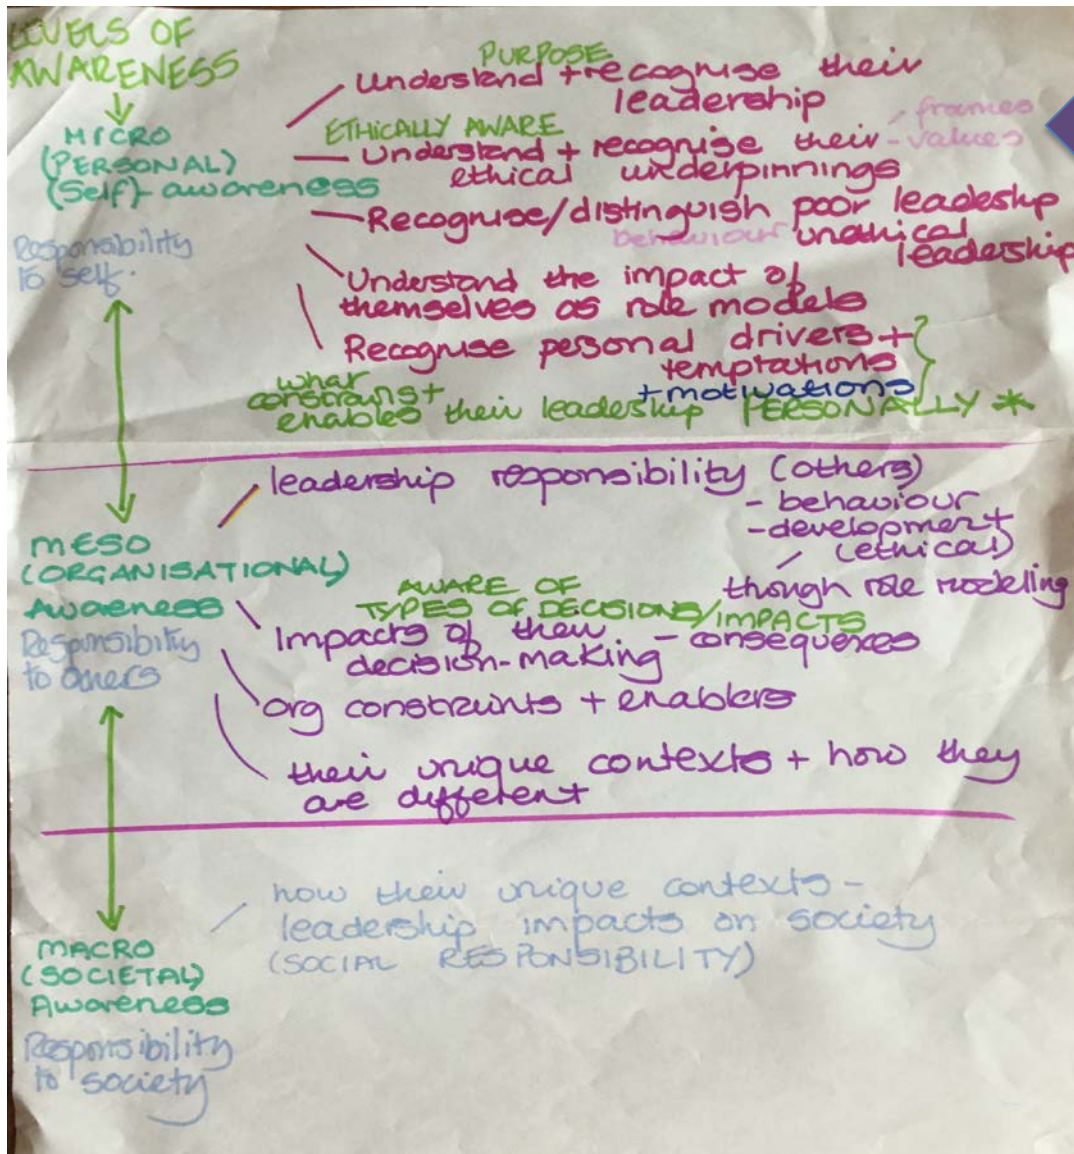 LEVELS OF
AWARENESS
MICRO
(PERSONAL)
(Self)-awareness
Responsibility
to self.
PURPOSE
understand + recognise their
leadership
ETHICALLY AWARE
understand + recognise their - frames
- values
ethical underpinnings
Recognise/distinguish poor leadeship
behaviour unethical
leadership
Understand the impact of
themselves as role models
Recognise personal drivers +
temptations
+ motivations
what
constrains +
enables their leadership PERSONALLY *
MESO
(ORGANISATIONAL)
Awareness
Responsibility
to others
leadership responsibility (others)
- behaviour
- development
(ethical)
though role modeling
AWARE OF
TYPES OF DECISIONS/IMPACTS
Impacts of their - consequences
decision-making
org constraints + enablers
their unique contexts + how they
are different
MACRO
(SOCIETAL)
Awareness
Responsibility
to society
how their unique contexts -
leadership impacts on society
(SOCIAL RESPONSIBILITY)